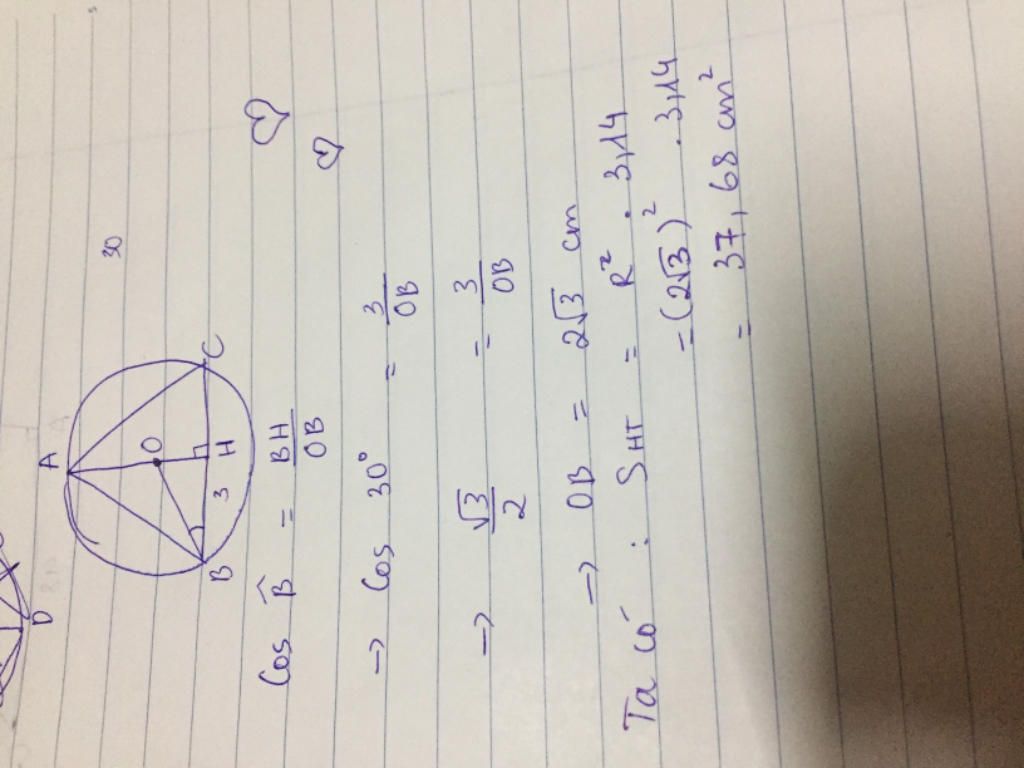 30
A
O
B 3 H C
D
Cos B̂ = BH/OB
→ Cos 30° = 3/OB
→ √3/2 = 3/OB
→ OB = 2√3 cm
Ta có : SHT = R² . 3,14
= (2√3)² . 3,14
= 37,68 cm²